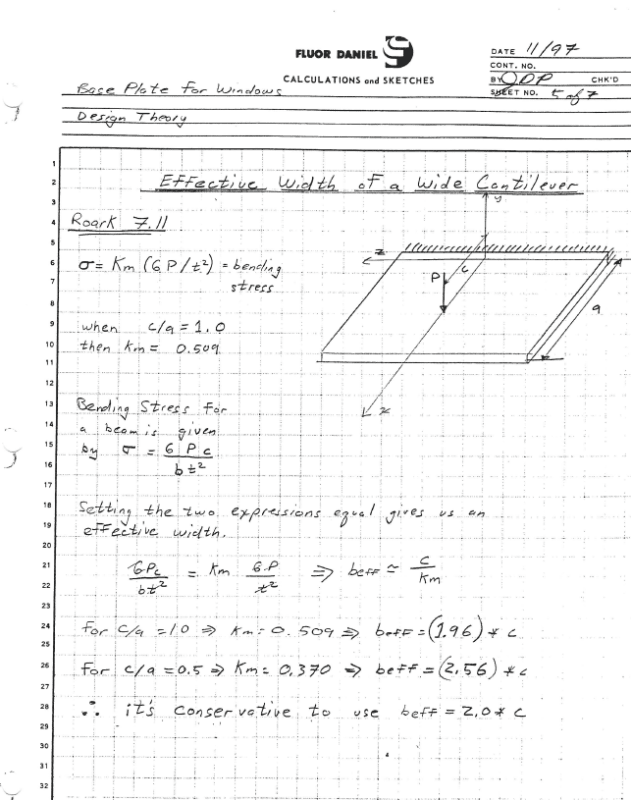 FLUOR DANIEL
CALCULATIONS and SKETCHES
DATE 11/97
CONT. NO.
BY ODP CHK'D
SHEET NO. 5 of 7
Base Plate for Windows
Design Theory
1
2 Effective Width of a Wide Cantilever
3 y
4 Roark 7.11
5 z
6 σ = Km (6P/t²) = bending c
7 stress P
8 a
9 when c/a = 1.0
10 then Km = 0.509
11
12 x
13 Bending Stress for
14 a beam is given
15 by σ = 6 P c / b t²
16
17
18 Setting the two expressions equal gives us an
19 effective width.
20
21 6Pc / bt² = Km 6P / t² ⇒ beff ≈ c / Km
22
23
24 for c/a = 1.0 ⇒ Km = 0.509 ⇒ beff = (1.96) * c
25
26 for c/a = 0.5 ⇒ Km = 0.370 ⇒ beff = (2.56) * c
27
28 ∴ it's conservative to use beff = 2.0 * c
29
30
31
32